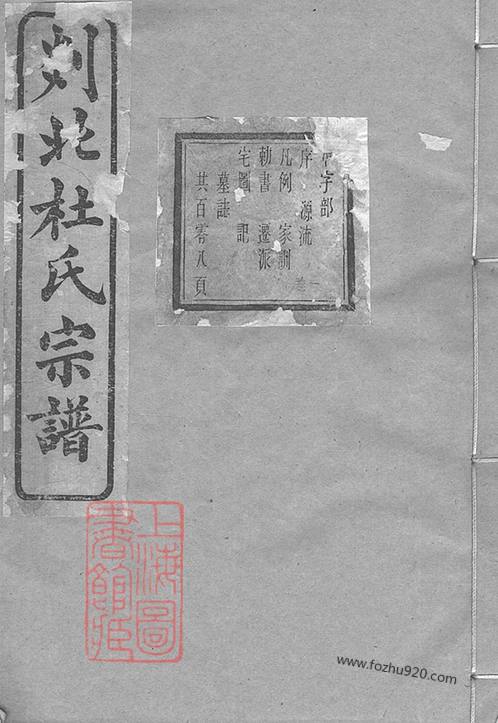 剡北杜氏宗譜
字部
序 源流
凡例 家訓
勅書 遷派
宅圖 記
墓誌
共百零八頁
上海圖
書館藏
www.fozhu920.com